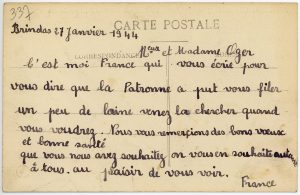 337
CARTE POSTALE
Brindas 27 Janvier 1944
CORRESPONDANCE
Mr eux et Madame Oger
C'est moi France qui vous écrie pour
vous dire que la Patronne a put vous filer
un peu de laine venez la chercher quand
vous voudrez. Nous vous remerçions des bons voeux
et bonne santé
que vous nous avez souhaitez on vous en souhaite autant
à tous. au plaisir de vous voir.
France